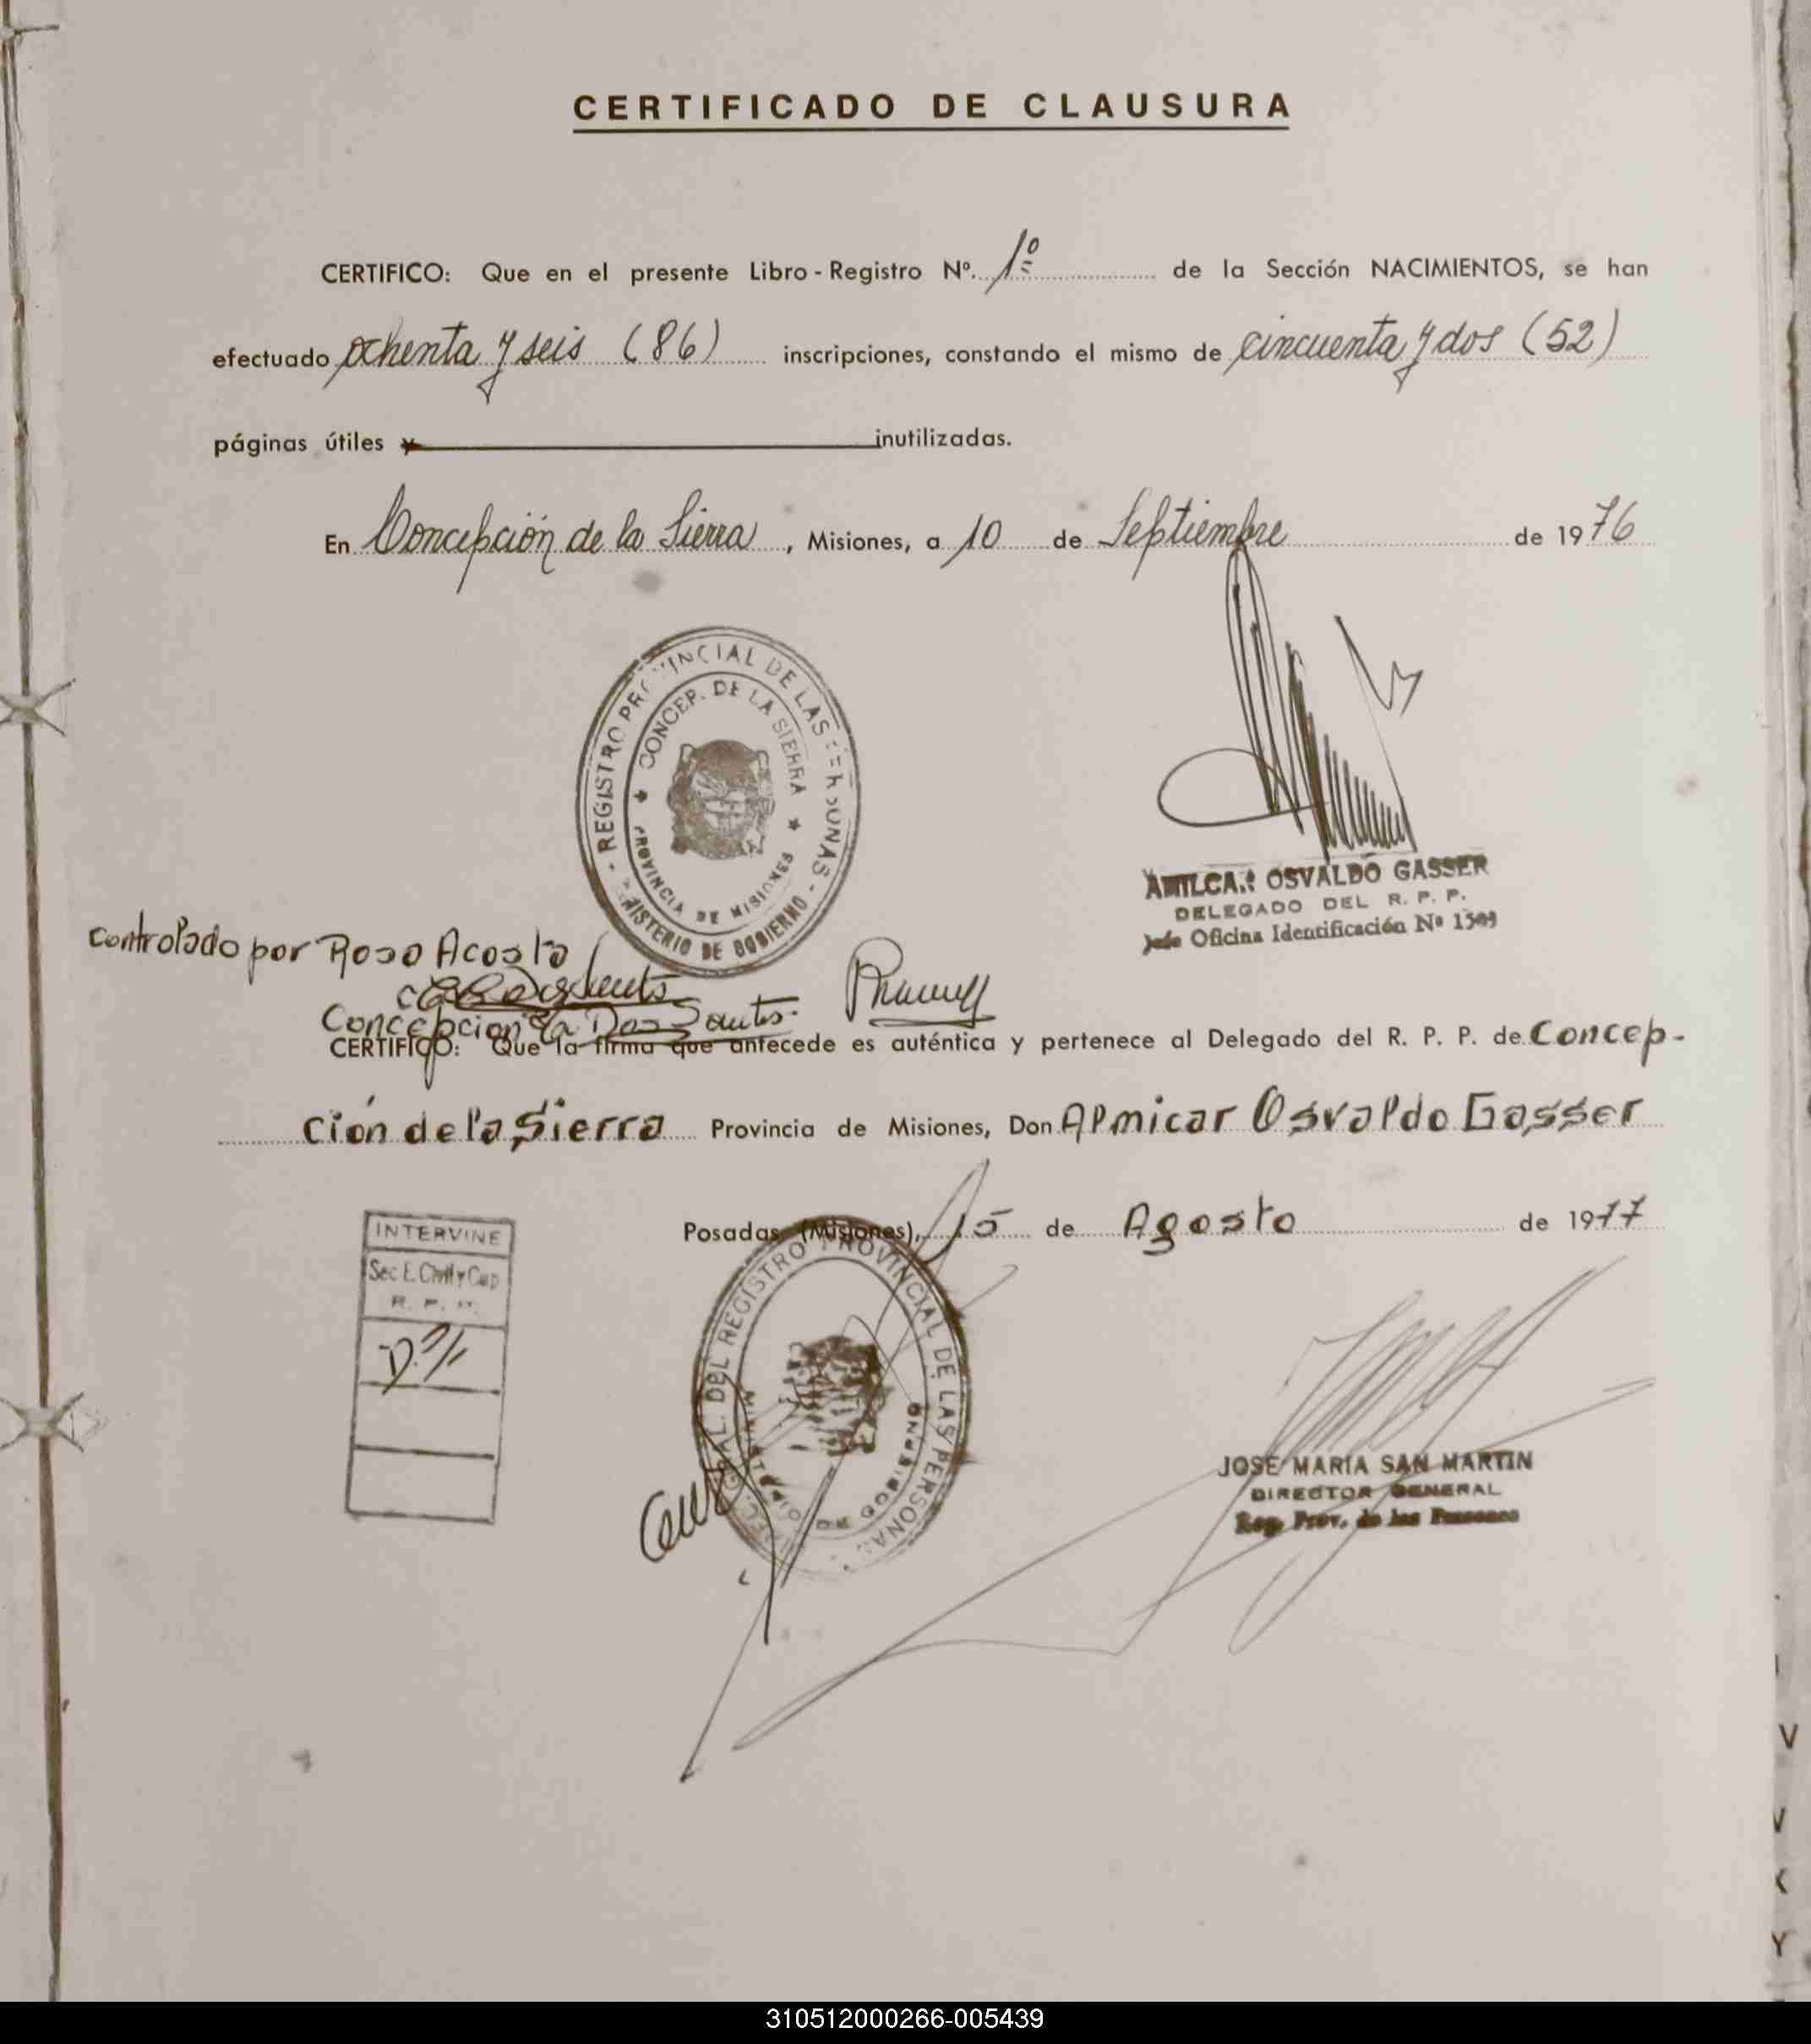 CERTIFICADO DE CLAUSURA
CERTIFICO: Que en el presente Libro - Registro Nº. 1º de la Sección NACIMIENTOS, se han
efectuado ochenta y seis (86) inscripciones, constando el mismo de cincuenta y dos (52)
páginas útiles y inutilizadas.
En Concepción de la Sierra, Misiones, a 10 de Septiembre de 1976
REGISTRO PROVINCIAL DE LAS PERSONAS - MINISTERIO DE GOBIERNO -
CONCEP. DE LA SIERRA
PROVINCIA DE MISIONES
AMILCAR OSVALDO GASSER
DELEGADO DEL R. P. P.
Jefe Oficina Identificación Nº 1509
Controlado por Rosa Acosta
Concepcion Dos Santos.
CERTIFICO: Que la firma que antecede es auténtica y pertenece al Delegado del R. P. P. de Concep-
ción de la Sierra Provincia de Misiones, Don Almicar Osvaldo Gasser
Posadas (Misiones), 15 de Agosto de 1977
INTERVINE
Sec E. Civil y Cap
R. P. P.
GRAL. DEL REGISTRO PROVINCIAL DE LAS PERSONAS
MINISTERIO DE GOBIERNO
JOSE MARIA SAN MARTIN
DIRECTOR GENERAL
Reg. Prov. de las Personas
V
V
K
Y
310512000266-005439